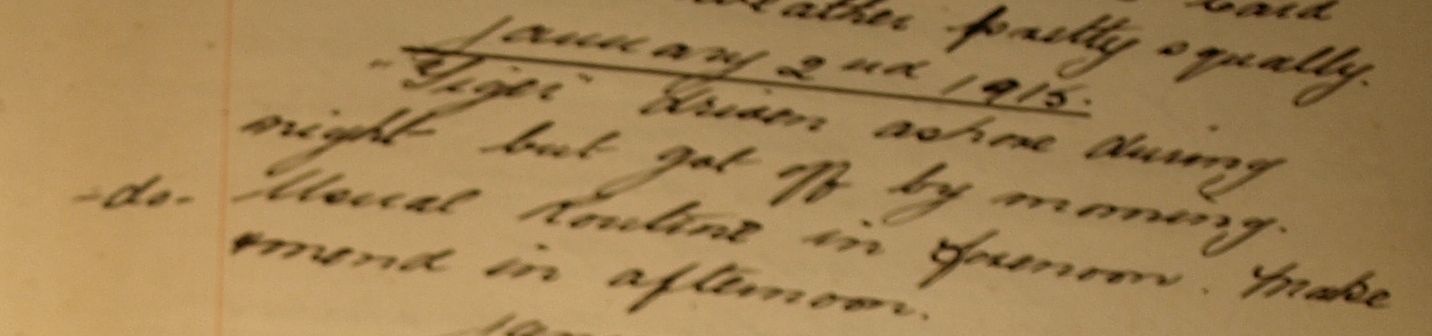 weather pretty equally.
January 2nd 1915.
"Tiger" driven ashore during
night but got off by morning.
-do- Usual Routine in forenoon. Make
& mend in afternoon.